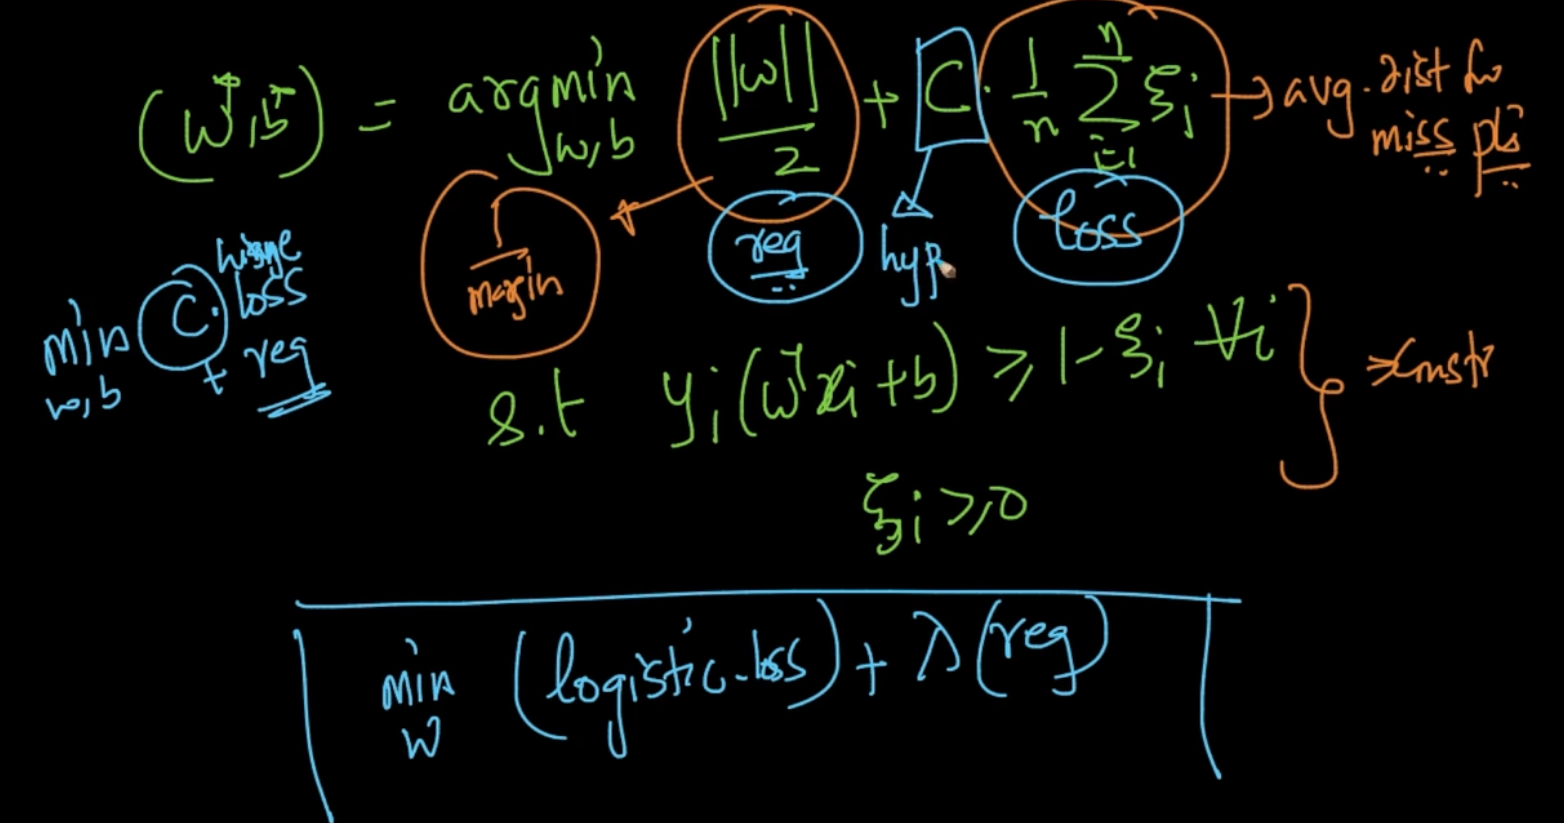 (w*, b*) = argmin w,b ||w||/2 + C · 1/n Σ i=1 n ξi → avg. dist for miss pts
margin
reg
hyp
loss
min w,b C. hinge loss + reg
s.t yi(wᵀxi + b) ≥ 1 - ξi ∀i
ξi ≥ 0
constr
min w (logistic-loss) + λ(reg)